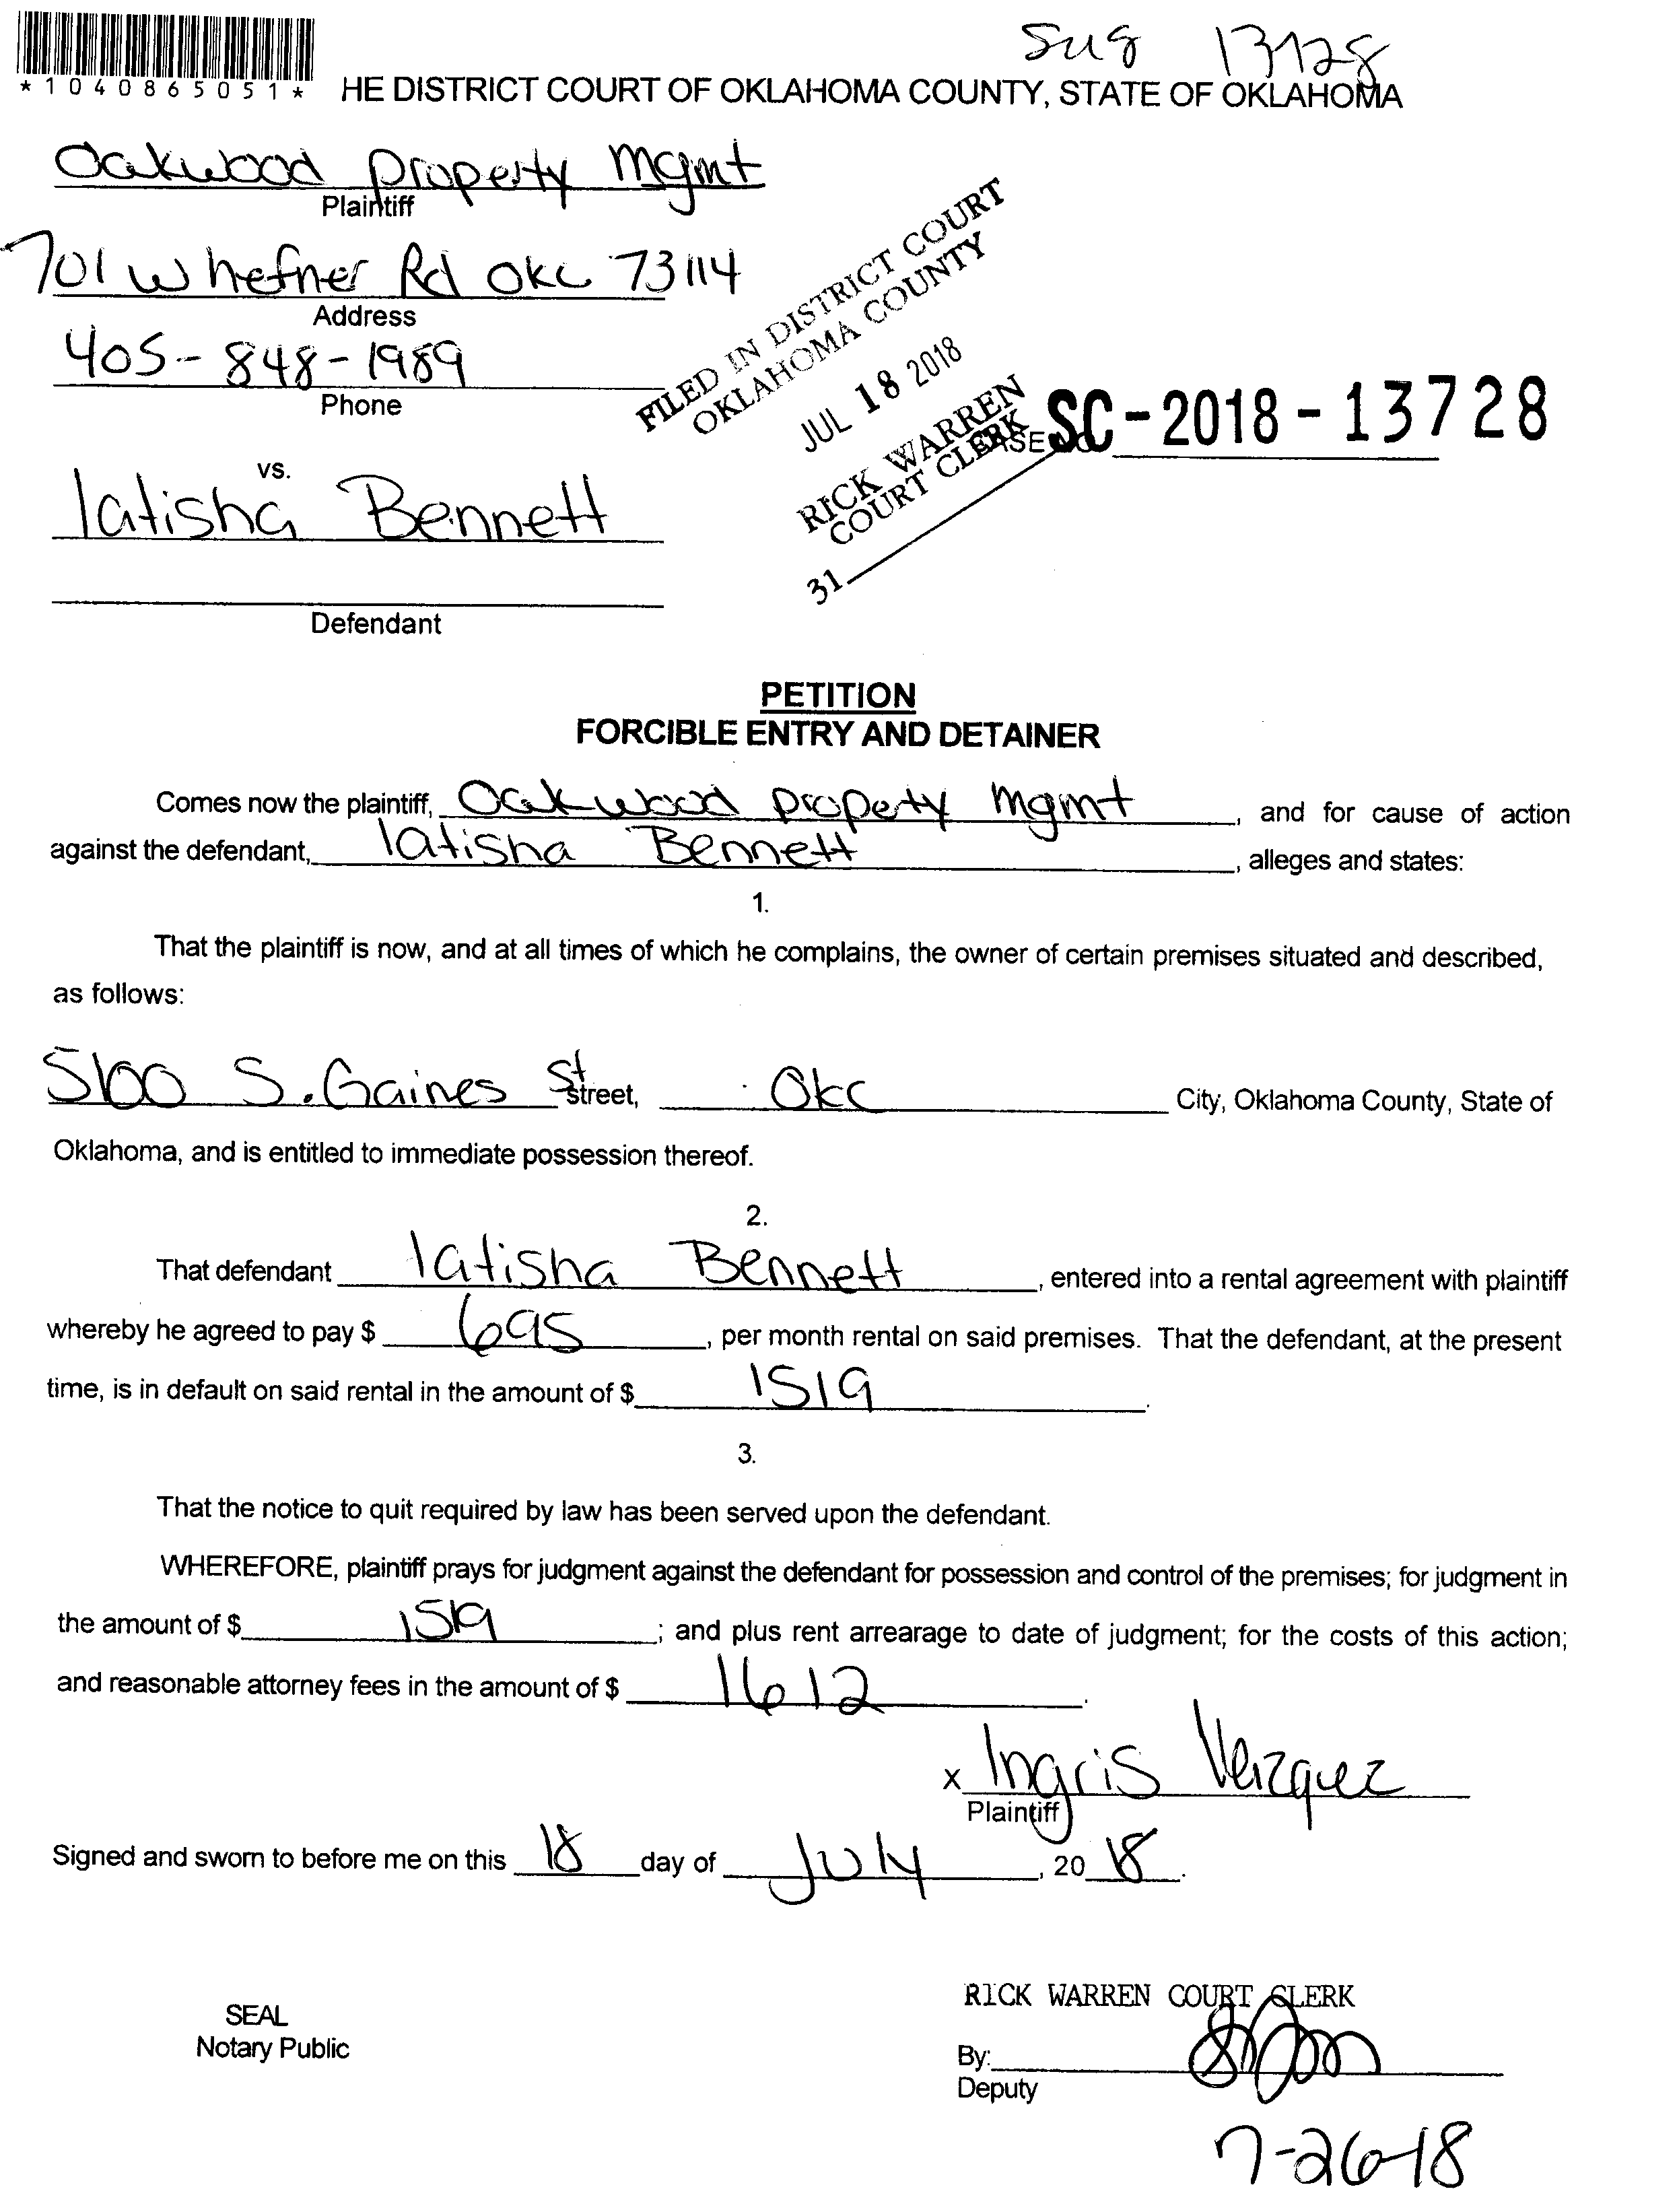 SC18 13728
*1040865051*
HE DISTRICT COURT OF OKLAHOMA COUNTY, STATE OF OKLAHOMA
Oakwood property mgmt
Plaintiff
701 W hefner Rd OKC 73114
Address
405-848-1989
Phone
FILED IN DISTRICT COURT
OKLAHOMA COUNTY
JUL 18 2018
RICK WARREN
COURT CLERK
31
SC-2018-13728
vs.
latisha Bennett
Defendant
PETITION
FORCIBLE ENTRY AND DETAINER
Comes now the plaintiff, Oakwood property mgmt, and for cause of action
against the defendant, latisha Bennett, alleges and states:
1.
That the plaintiff is now, and at all times of which he complains, the owner of certain premises situated and described,
as follows:
5100 S. Gaines St Street, OKC City, Oklahoma County, State of
Oklahoma, and is entitled to immediate possession thereof.
2.
That defendant latisha Bennett, entered into a rental agreement with plaintiff
whereby he agreed to pay $ 695, per month rental on said premises. That the defendant, at the present
time, is in default on said rental in the amount of $ 1519.
3.
That the notice to quit required by law has been served upon the defendant.
WHEREFORE, plaintiff prays for judgment against the defendant for possession and control of the premises; for judgment in
the amount of $ 1519; and plus rent arrearage to date of judgment; for the costs of this action;
and reasonable attorney fees in the amount of $ 1612.
x Ingris Velzquez
Plaintiff
Signed and sworn to before me on this 18 day of July, 20 18.
SEAL
Notary Public
RICK WARREN COURT CLERK
By:
Deputy
7-26-18